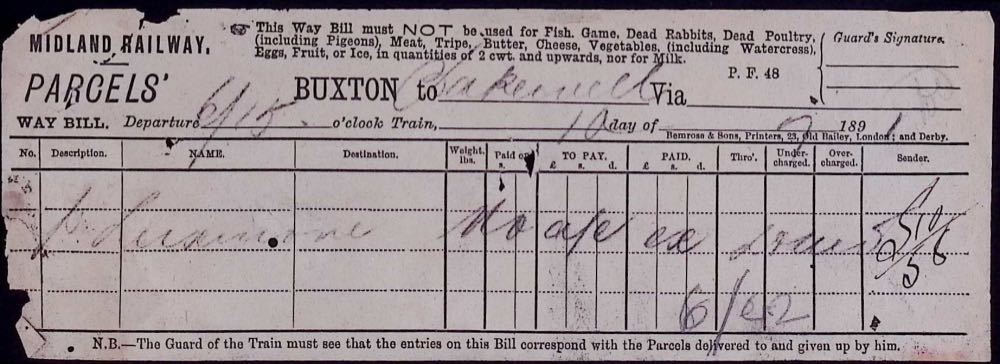 ☞ This Way Bill must NOT be used for Fish, Game, Dead Rabbits, Dead Poultry,
(including Pigeons), Meat, Tripe, Butter, Cheese, Vegetables, (including Watercress),
Eggs, Fruit, or Ice, in quantities of 2 cwt. and upwards, nor for Milk.
Guard's Signature.
MIDLAND RAILWAY.
P. F. 48
PARCELS' BUXTON to Bakewell Via
WAY BILL. Departure 6/15 o'clock Train, 10 day of 189
Bemrose & Sons, Printers, 23, Old Bailey, London; and Derby.
No. Description. NAME. Destination. Weight. lbs. Paid on s. TO PAY. £ s. d. PAID. £ s. d. Thro'. Under-charged. Over-charged. Sender.
No a/c
6/22
N.B.—The Guard of the Train must see that the entries on this Bill correspond with the Parcels delivered to and given up by him.